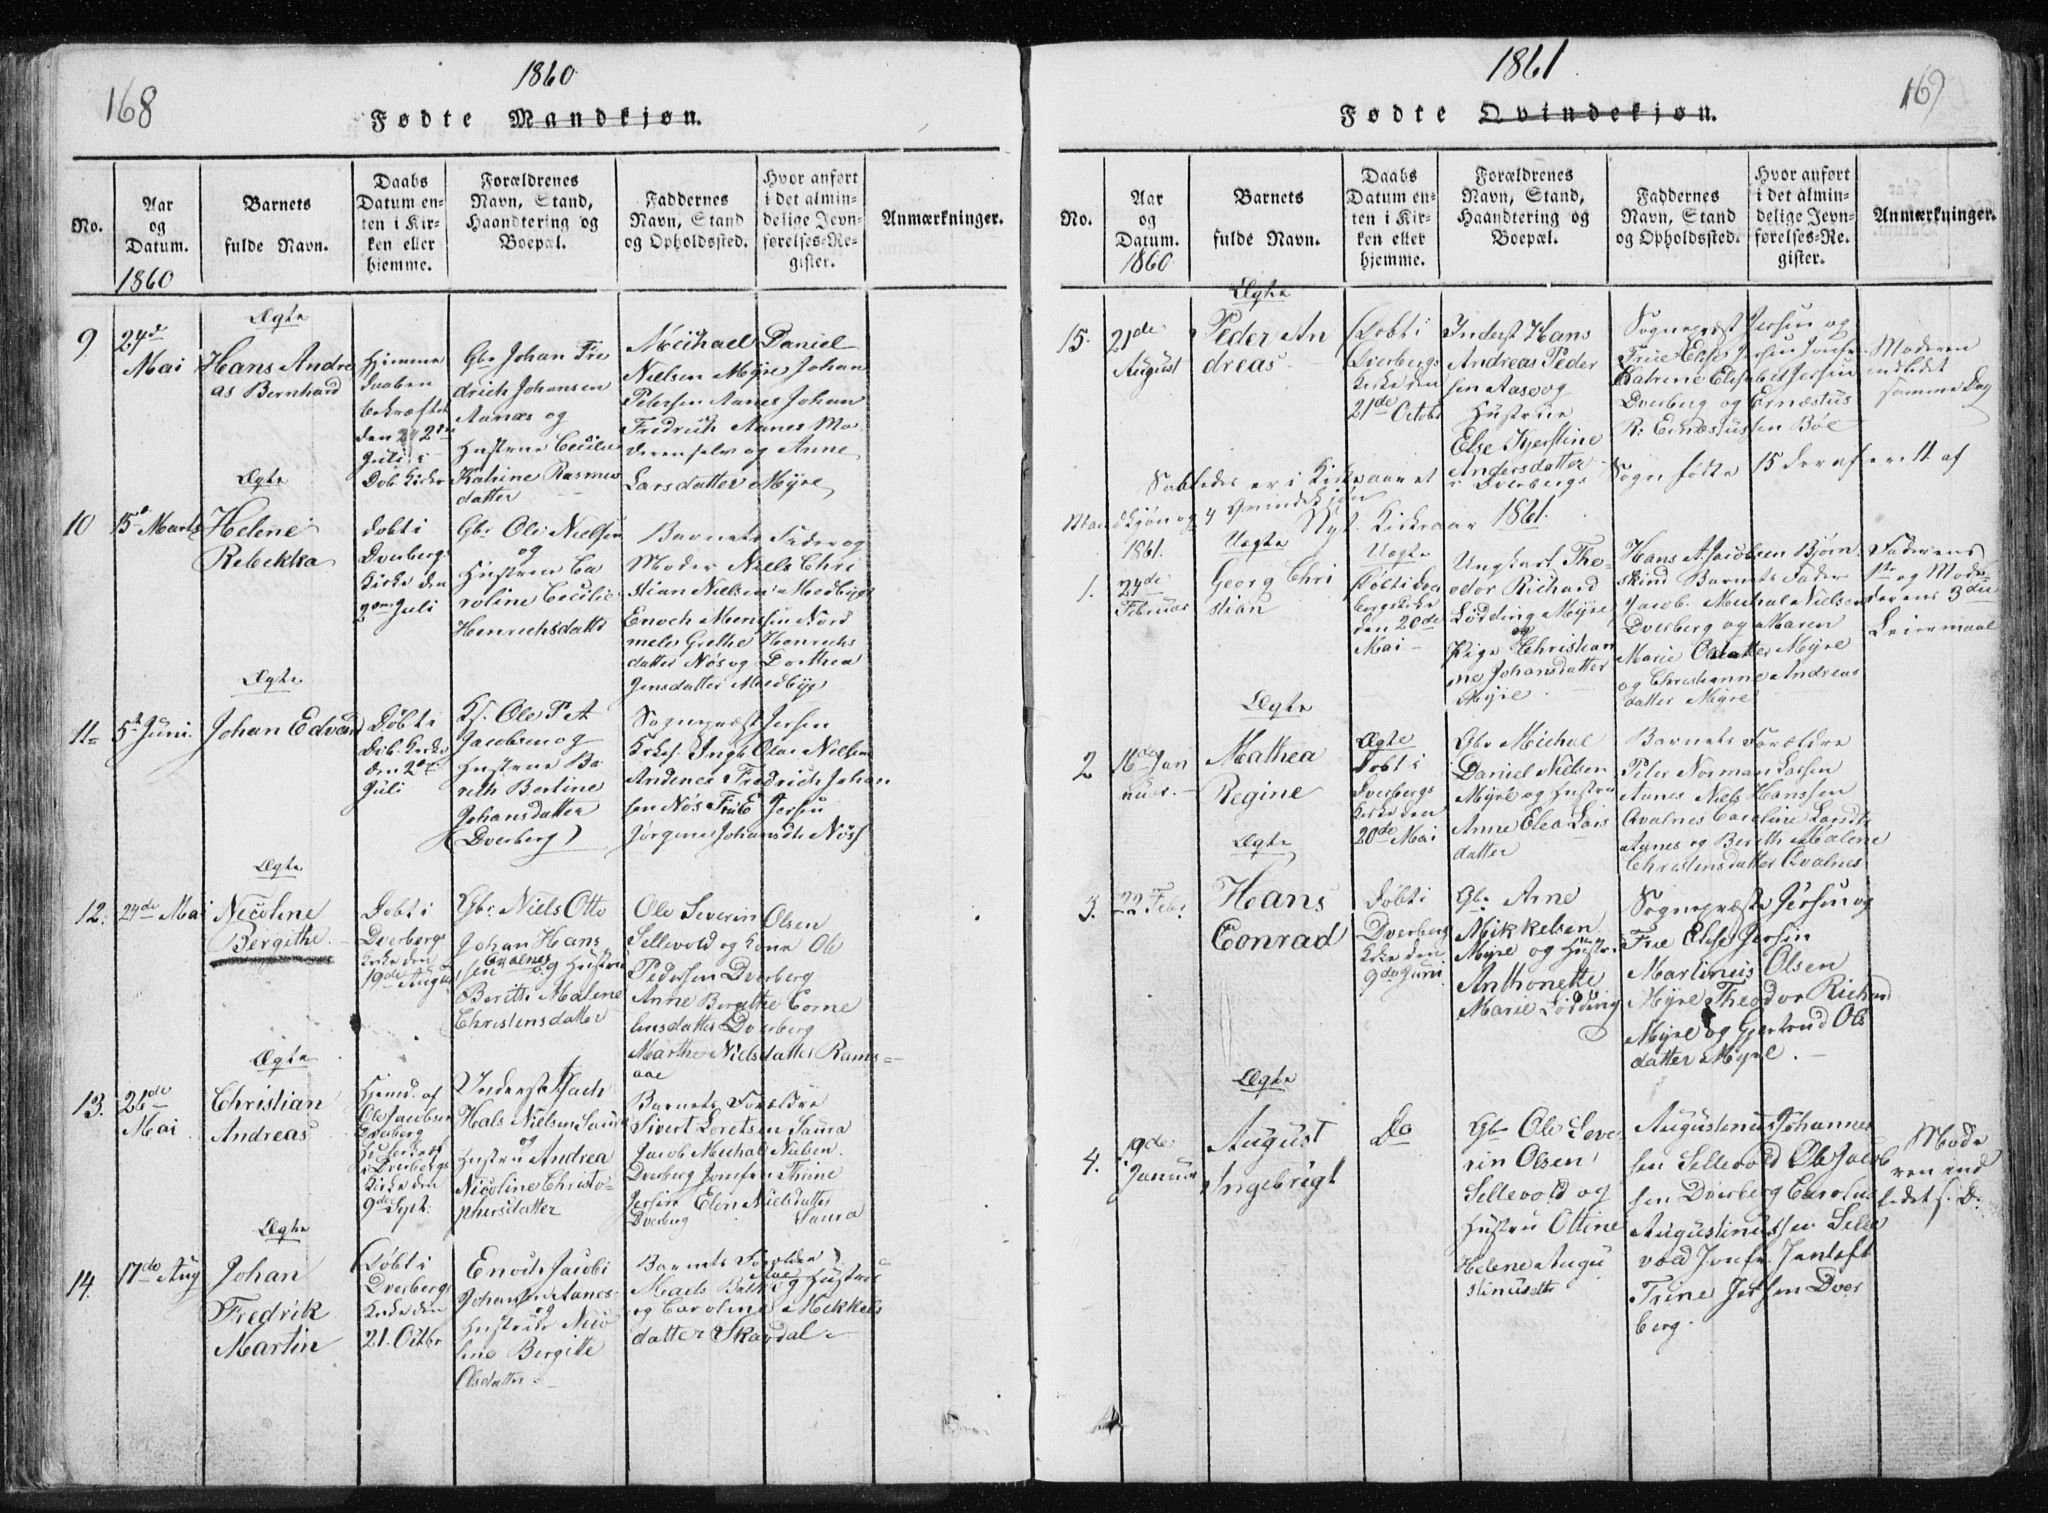 168
1860
Fødte Mandkjøn.
No.
Aar
og
Datum.
1860
Barnets
fulde Navn.
Daabs
Datum en-
ten i Kir-
ken eller
hjemme.
Forældrenes
Navn, Stand,
Haandtering og
Boepæl.
Faddernes
Navn, Stand
og Opholdssted.
Hvor anført
i det almin-
delige Jevn-
førelses-Re-
gister.
Anmærkninger.
9
24d
Mai
Ægte
Hans Andre
as Bernhard
Hjemme
daaben
bekræftet
den
Juli i
Dvb. Kirke
Gbr Johan Fre
drich Johansen
Aanæs og
Hustrue Cecilie
Katrine Rasmus
datter
Meichael Daniel
Nielsen Myre Johan
Petersen Aanes Johan
Fredrich Aanes Mo
deren selv og Anne
Larsdatter Myre
10
15d Marts
Ægte
Helene
Rebekka
Døbt i
Dverbergs
Kirke den
2den Juli
Gbr. Ole Nielsen
og
Hustrue Ca
roline Cecilie
Henrichsdattr
Barnets Fader og
Moder Niels Chri
stian Nielsen Medbye
Enoch Mensen Nord
mele Grethe Henrichs
datter Nøs og Dorthea
Jensdatter Medbye
11
5t Juni.
Ægte
Johan Edvard
Døbt i
Dvb. Kirke
den 2den
Juli
Ks. Ole P A
Jacobsen og
Hustrue Be
reth Bertine
Johansdatter
(Dverberg)
Sognepræst Jersin
Kirkes. Ingb Olai Nielsen
Andenes Fredrich Johan
sen Nøs Frue E Jersin
Jørgine Johansdtr Nøss
12.
24de Mai
Ægte
Nicoline
Bergithe
Døbt i
Dverbergs
Kirke den
19de August
Gbr: Niels Otto
Johan Hans
sen Qvalnes og Hustrue
Berith Malene
Christensdatter
Ole Severin Olsen
Sellevold og Kone Ole
Pedersen Dverberg
Anne Bergithe Corne
liusdatter Dverberg
Marthe Nielsdatter Rams=
aae
13.
21de
Mai
Ægte
Christian
Andreas
Hjemd. af
Ole Jacobsen
Dverberg
i Dverbergs
Kirke den
9de Sept.
Inderst Zach
Hals Nielsen Saura
og
Hustru Andrea
Nicoline Christo=
phersdatter
Barnets Forældre
Sivert Loretsen Saura
Jacob Michal Nielsen
Dverberg Jomfru Trine
Jersin Elen Nielsdatter
Dverberg Saura
14.
17de Aug
Ægte
Johan
Fredrik
Martin
Døbt i
Dverbergs
Kirke den
21. Octbr
Enoch Jacobi
Johansen Aanes
og
Hustrue Nico
line Bergitte
Olsdatter
Barnets Forældre
Mads og Hustrue
og Caroline Mikkels
datter Skavdal
169
1861
Fødte Qvindekjøn.
No.
Aar
og
Datum.
1860
Barnets
fulde Navn.
Daabs
Datum en-
ten i Kir-
ken eller
hjemme.
Forældrenes
Navn, Stand,
Haandtering og
Boepæl.
Faddernes
Navn, Stand
og Opholdssted.
Hvor anført
i det almin-
delige Jevn-
førelses-Re-
gister.
Anmærkninger.
15.
21de
August
Ægte
Peder An
dreas
Døbt i
Dverbergs
Kirke den
21de Octobr
Inderst Hans
Andreas Peder
sen Aase og
Hustrue
Else Kjerstine
Andersdatter
Sognepræst Jersin og
Frue Elise Jersin Jomfr.
Katrine Elisabet Jersin
Dverberg og Ernæstus
R. Ernæstussen Bøe
Moderen
indledet
samme Dag
Saaledes er i Kirkeaaret i Dverbergs Sogn fødte 15 deraf ere 11 af
Mandkjøn og 4 Qvindekjøn
Nyt Kirkeaar 1861.
1.
1861.
24de
Februar
Uægte
Georg Chri
stian
Uægte
Døbt i Dver
bergs Kirke
den 20de
Mai
Ungkarl The-
odor Richard
Lødding Myre
og
Pige Christian
ne Johansdatter
Myre
Hans A. Jacobsen Bjørn
skind Barnets Fader
Jacob Michal Nielsen
Dverberg og Maren
Marie Olsdatter Myre
og Christianne Andreas
datter Myre
Faderens
1ste og Mode-
derens 3die
Leiermaal
2
16de Jan
uar
Ægte
Mathea
Regine
Ægte
Døbt i
Dverbergs
Kirke den
20de Mai
Gbr Michal
Daniel Nielsen
Myre og Hustru
Anne Elea Lars
datter
Barnets Forældre
Peter Norman Larsen
Aanes Niels Hanssen
Qvalnes Caroline Larsdtr
Aanes og Berith Malene
Christensdatter Qvalnes
3.
22 Febr
Ægte
Hans
Conrad
Døbt i
Dverberg
Kirke den
9de Juni
Gbr. Arne
Mikkelsen
Myre og Hustr
Anthonette
Marie Lødding
Sognepræst Jersin og
Frue Elise Jersin
Martinus Olsen
Myre Theodor Richard
Myre og Gjertrud Ols
datter Myre.
4.
19de
Januar
Ægte
August
Ingebrigt
Do
Gbr Ole Seve
rin Olsen
Sellevold og
Hustru Ottine
Helene Augu
stinusdtr
Augustinus Johannes
sen Sellevold Ole Jacob
sen Dverberg Carolus
Augustinussen Selle
vold Jomfr. Jentoft
Trine Jersen Dver
berg.
Mode
ren ind
ledet s. D.